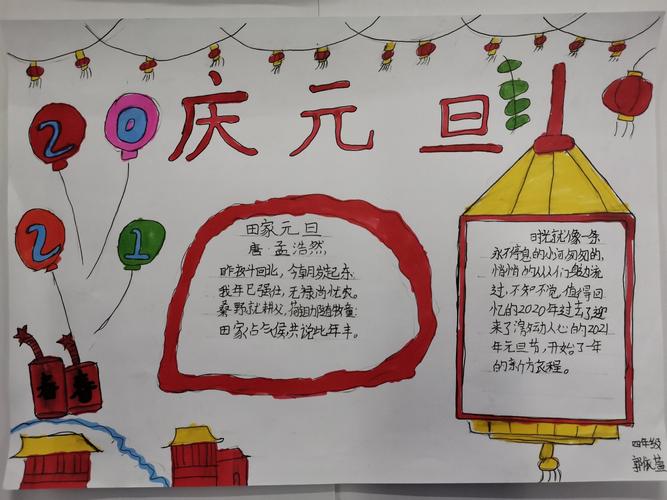 庆元旦
20
21
田家元旦
唐·孟浩然
昨夜斗回北，今朝岁起东
我年已强仕，无禄尚忧农。
桑野就耕父，荷锄随牧童
田家占气候共说比年丰。
时光就像一条
永不停息的小河匆匆的，
悄悄的从人们身边流
过，不知不觉，值得回
忆的2020年过去了迎
来了激动人心的2021
年元旦节，开始了一年
的新的旅程。
春
春
四年级
郭